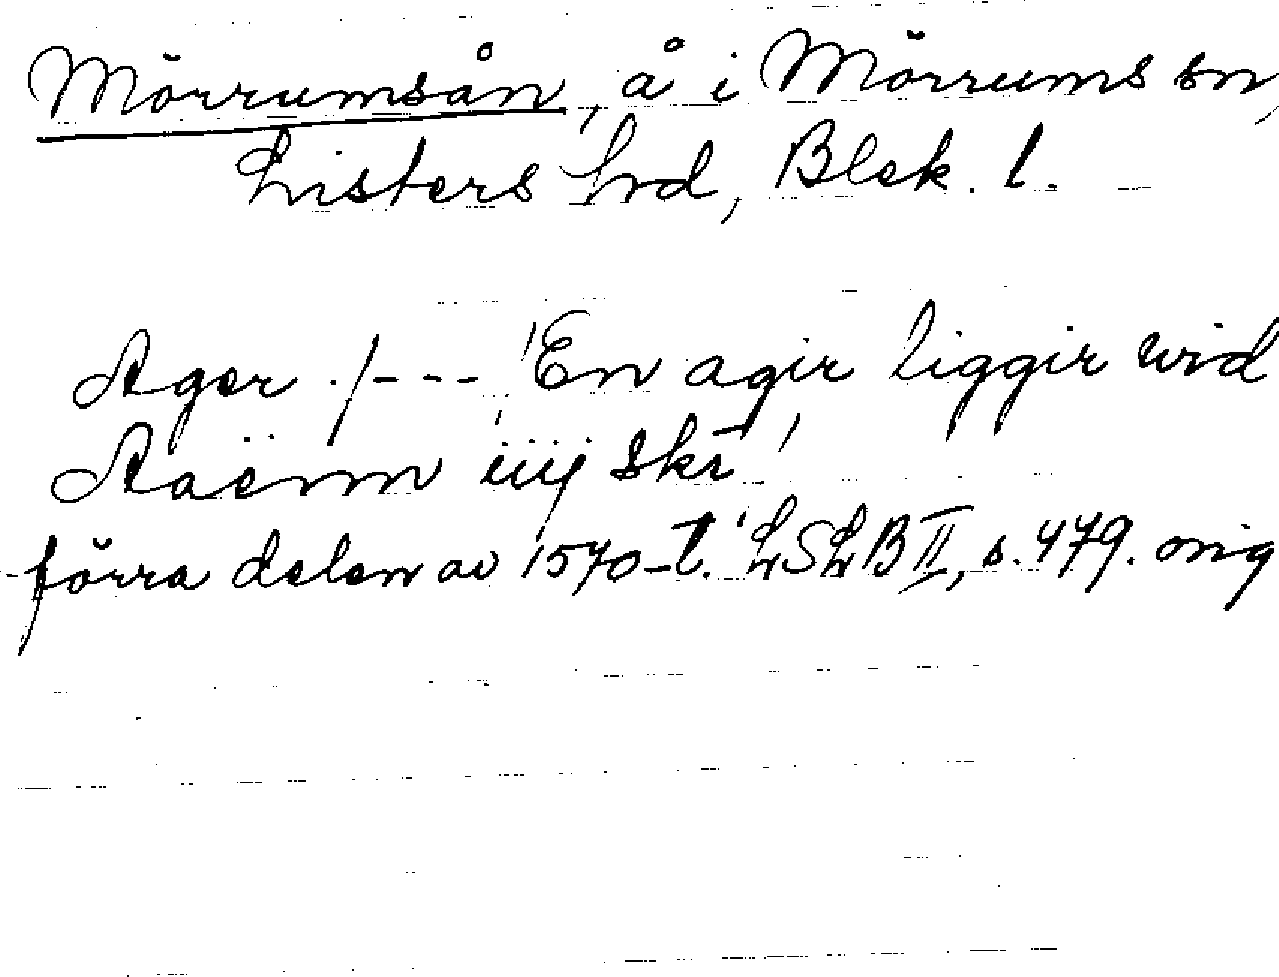 Mörrumsån, å i Mörrums sn,
Listers hrd, Blek. l.
Ager ./--- 'En agir liggir wid
Aaënn iiij skr̄'
förra delen av 1570-t. LSLB II, s. 479. orig